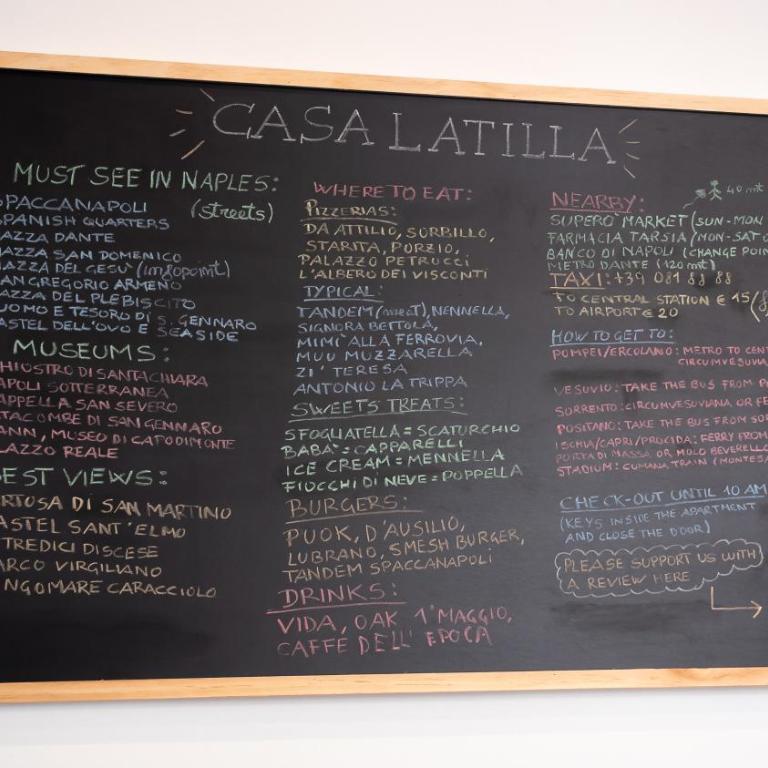 CASA LATILLA
MUST SEE IN NAPLES:
SPACCANAPOLI (streets)
SPANISH QUARTERS
IAZZA DANTE
IAZZA SAN DOMENICO
IAZZA DEL GESU' (infopoint)
AN GREGORIO ARMENO
AZZA DEL PLEBISCITO
UOMO E TESORO DI S. GENNARO
ASTEL DELL'OVO E SEASIDE
MUSEUMS:
HIOSTRO DI SANTA CHIARA
APOLI SOTTERRANEA
APPELLA SAN SEVERO
TACOMBE DI SAN GENNARO
ANN, MUSEO DI CAPODIMONTE
LAZZO REALE
EST VIEWS:
RTOSA DI SAN MARTINO
ASTEL SANT'ELMO
TREDICI DISCESE
ARCO VIRGILIANO
NGOMARE CARACCIOLO
WHERE TO EAT:
PIZZERIAS:
DA ATTILIO, SORBILLO,
STARITA, PORZIO,
PALAZZO PETRUCCI
L'ALBERO DEI VISCONTI
TYPICAL:
TANDEM (meat), NENNELLA,
SIGNORA BETTOLA,
MIMI' ALLA FERROVIA,
MUU MUZZARELLA
ZI' TERESA
ANTONIO LA TRIPPA
SWEETS TREATS:
SFOGLIATELLA = SCATURCHIO
BABA' = CAPPARELLI
ICE CREAM = MENNELLA
FIOCCHI DI NEVE = POPPELLA
BURGERS:
PUOK, D'AUSILIO,
LUBRANO, SMESH BURGER,
TANDEM SPACCANAPOLI
DRINKS:
VIDA, OAK, 1°MAGGIO,
CAFFE DELL' EPOCA
40 mt
NEARBY:
SUPERO MARKET (SUN-MON
FARMACIA TARSIA (MON-SAT
BANCO DI NAPOLI (CHANGE POIN
METRO DANTE (120 mt)
TAXI: +39 081 88 88
TO CENTRAL STATION € 15
TO AIRPORT € 20
HOW TO GET TO:
POMPEI/ERCOLANO: METRO TO CENT
CIRCUMVESUVIA
VESUVIO: TAKE THE BUS FROM P
SORRENTO: CIRCUMVESUVIANA OR FE
POSITANO: TAKE THE BUS FROM SOR
ISCHIA/CAPRI/PROCIDA: FERRY FROM
PORTA DI MASSA OR MOLO BEVERELLO
STADIUM: CUMANA TRAIN (MONTESA
CHECK-OUT UNTIL 10 AM
(KEYS INSIDE THE APARTMENT
AND CLOSE THE DOOR)
PLEASE SUPPORT US WITH
A REVIEW HERE